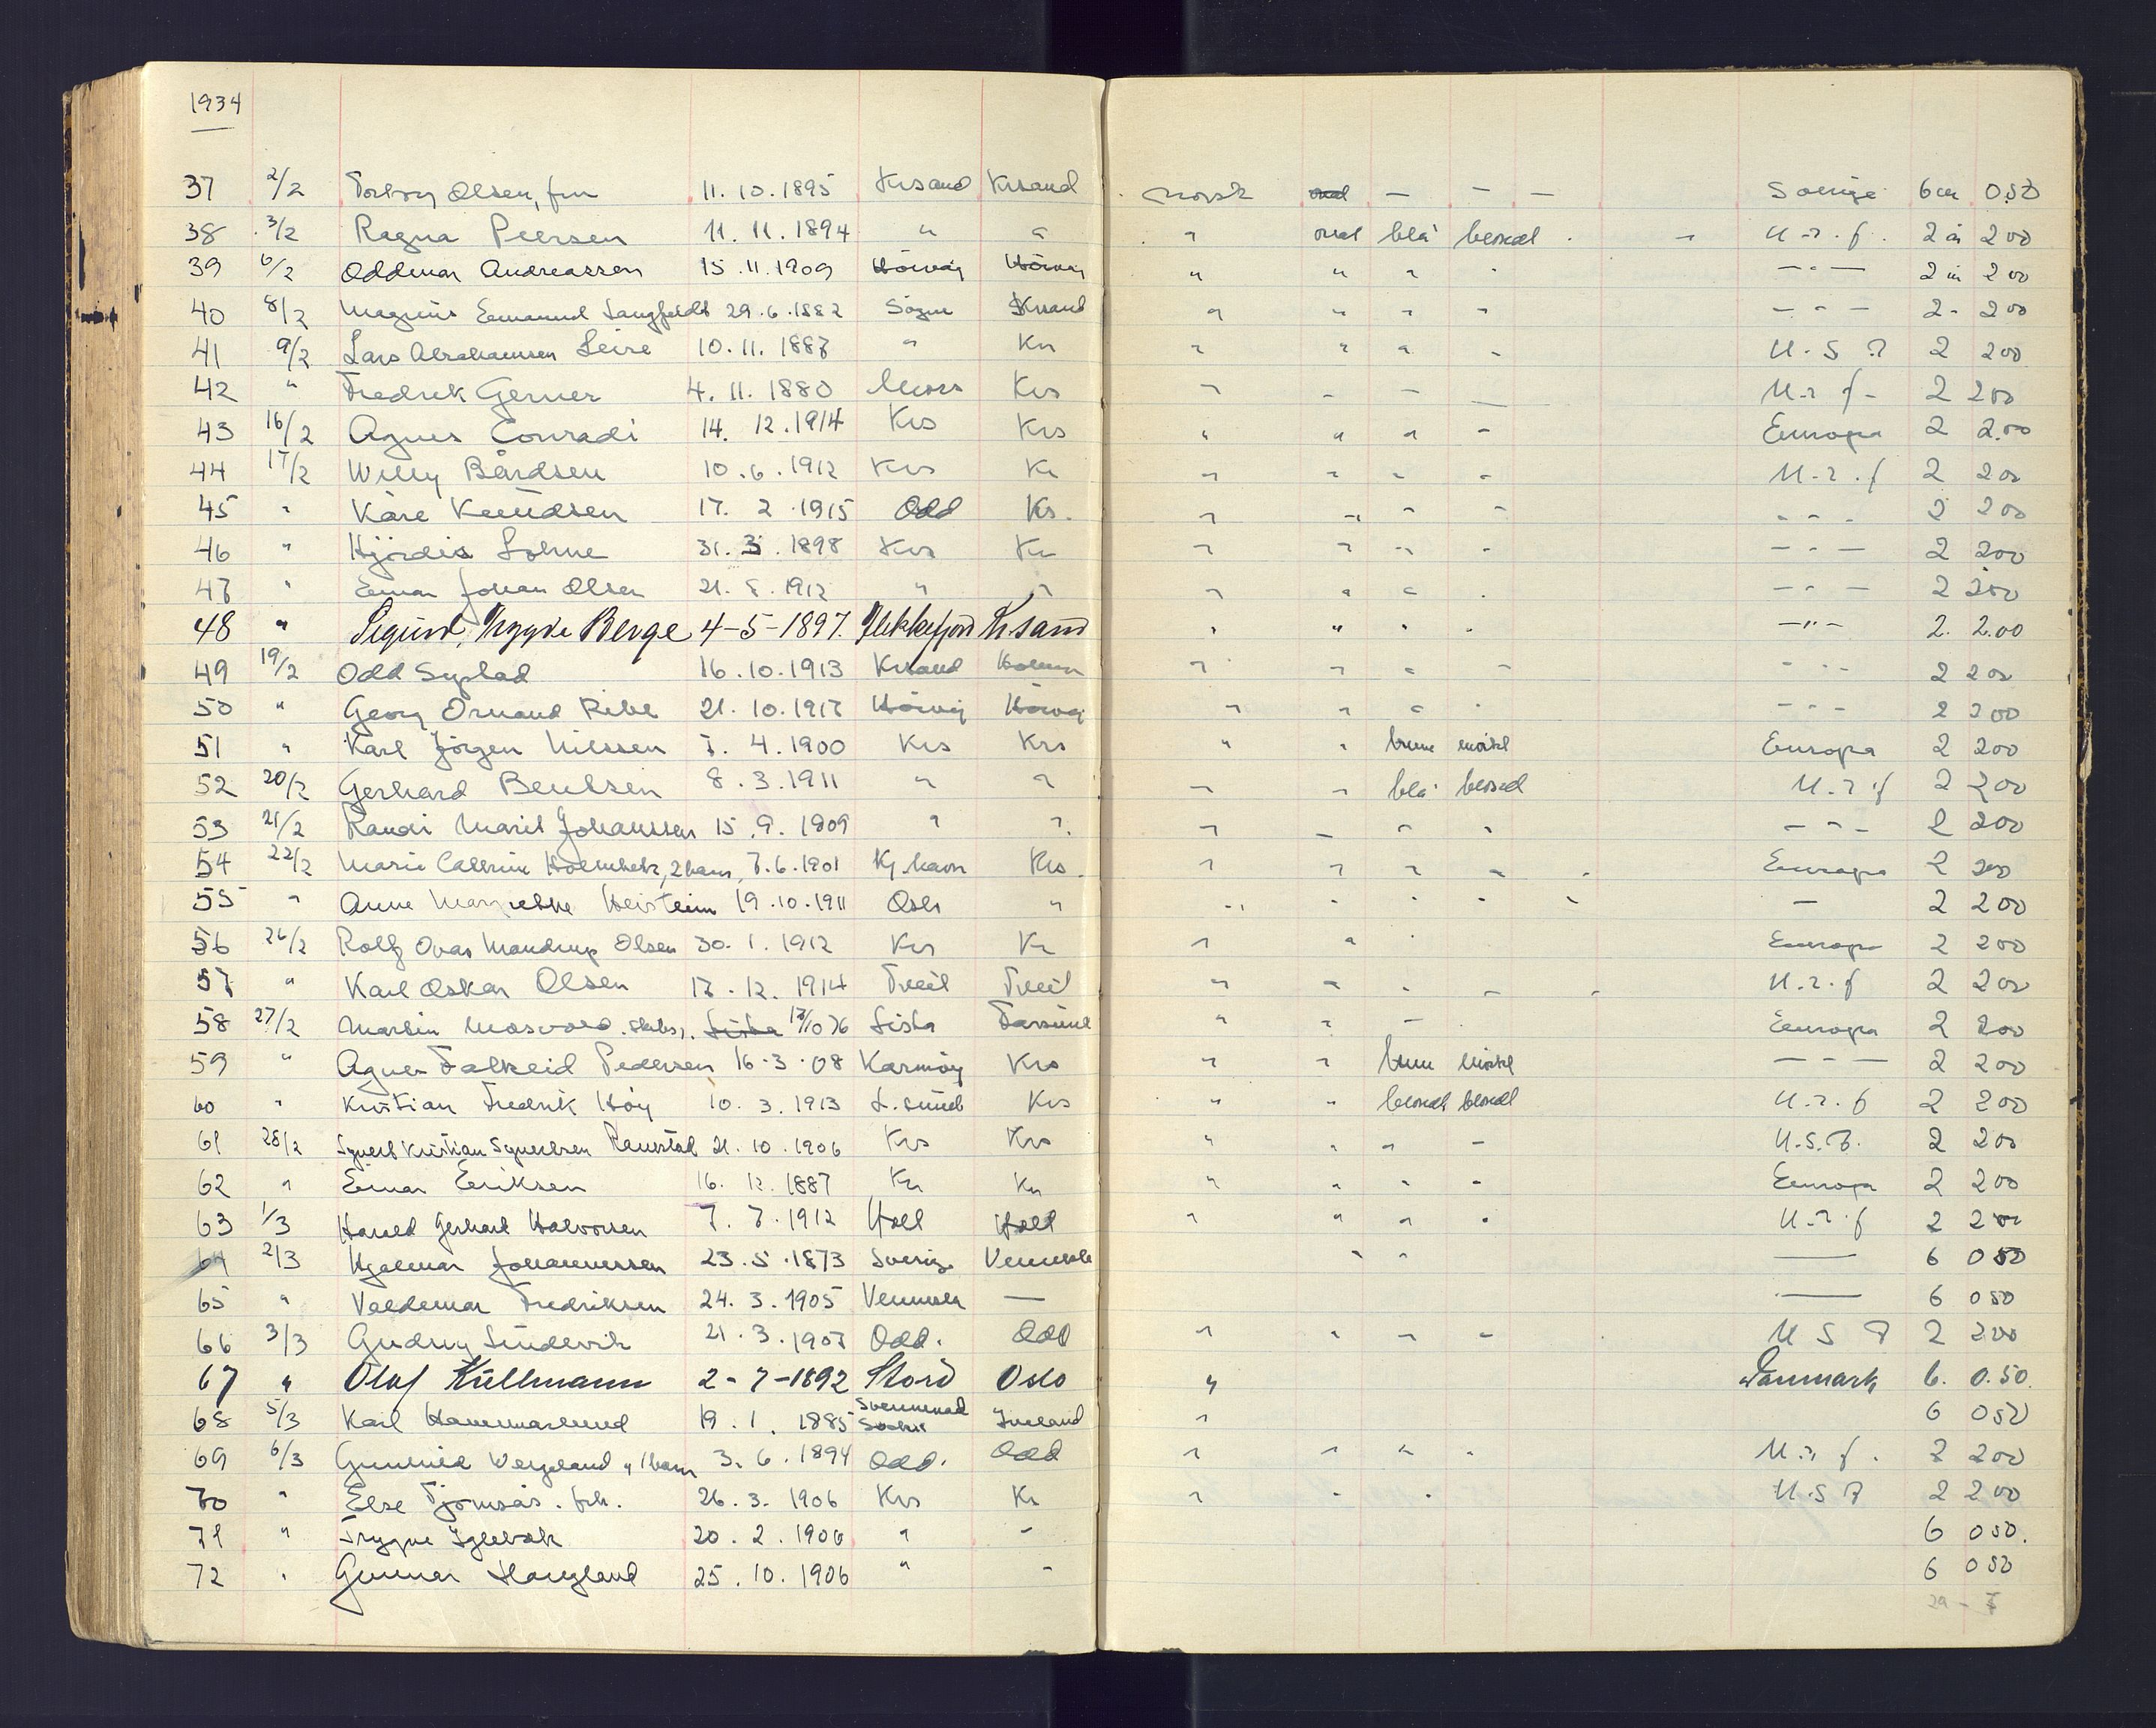 1934
37 2/2 Torborg Olsen, fru 11.10.1895 Krsand Krsand norsk oval — — — Sverige 6 m 0.50
38 3/2 Ragna Peersen 11.11.1894 " " " oval blå blond " U.r.f. 2 år 2 00
39 6/2 Oddmar Andreassen 15.11.1909 Hövåg Hövåg " " " " — " — 2 år 2 00
40 8/2 Magnus Emanuel Langfeldt 29.6.1882 Søgne Krsand " " " " — " — 2 - 2 00
41 9/2 Lars Abrahamsen Leire 10.11.1887 " Kr " " " " U.S.A 2 2 00
42 " Fredrik Gerner 4.11.1880 Moss Krs " " " — U.r.f. 2 2 00
43 16/2 Agnes Conradi 14.12.1914 Krs Krs " " " " Europa 2 2.00
44 17/2 Willy Bårdsen 10.6.1912 Krs Kr " " " " U.r.f 2 2 00
45 " Kåre Knudsen 17.2.1915 Odd Kr. " " " " - " - 2 2 00
46 " Hjördis Lohne 31.3.1898 Krs Kr " " " " — " — 2 2 00
47 " Einar Johan Olsen 21.8.1912 " " " " " " — " — 2 2 00
48 " Sigurd Trygve Berge 4-5-1897. Flekkefjord Kr.sand " " " " — " — 2. 2.00
49 19/2 Odd Syrlad 16.10.1913 Krsand " " " " - " - 2 2 00
50 " Georg Ormand Ribe 21.10.1917 Hövåg Hövåg " " " " - " - 2 2 00
51 " Karl Jörgen Nilssen 7.4.1900 Krs Krs " " brune mörkt Europa 2 2 00
52 20/2 Gerhard Bentsen 8.3.1911 " " " " blå blond U.r.f 2 2 00
53 21/2 Randi Marit Johanssen 15.9.1909 " " " — " " — " — 2 2 00
54 22/2 Marie Cathrine Holmbek, 2 barn, 7.6.1901 Kj.havn Krs. " " " " " Europa 2 2 00
55 " Anne Margrethe Heistein 19.10.1911 Oslo " " " " " " — 2 2 00
56 26/2 Rolf Ovas Mandrup Olsen 30.1.1912 Krs Kr " " " Europa 2 2 00
57 " Karl Oskar Olsen 17.12.1914 Tveit Tveit " " " " " U.r.f 2 2 00
58 27/2 Martin Mosvold. skibsr. Lista 17/10 76 Lista Farsund " " " Europa 2 2 00
59 " Agnes Falkeid Pedersen 16.3.08 Karmöy Krs " " brun mörkt — " — 2 2 00
60 " Kristian Fredrik Höy 10.3.1913 L.sund Krs " " blondt blondt U.r.f 2 2 00
61 28/2 Syvert Kristian Syvertsen Raustad 21.10.1906 Krs Krs " " " " U.S.A. 2 2 00
62 " Einar Eriksen 16.12.1887 Kr Kr " " " " Europa 2 2 00
63 1/3 Harald Gerhard Halvorsen 7.7.1912 Holl Holl " " " " U.r.f 2 2 00
64 2/3 Hjalmar Johannessen 23.5.1873 Sverige Vennesla " " — 6 0 50
65 " Valdemar Fredriksen 24.3.1905 Vennesla — — 6 0 50
66 3/3 Gudrun Sündevik 21.3.1907 Odd. Odd " " " " U S A 2 2 00
67 " Olaf Küllmann 2-7-1892 Stord Oslo " Danmark 6. 0.50.
68 5/3 Karl Hammarlund 19.1.1885 Iveland " 6 0 50
69 6/3 Gunhild Vergeland, 1 barn 3.6.1894 Odd. Odd " " " " U.r.f. 2 2 00
70 " Else Tjomsås. frk. 26.3.1906 Krs Kr " " " U.S.A 2 2 00
71 " Trygve Iglebæk 20.2.1906 " " 6 0 50.
72 " Gunnar Haugland 25.10.1906 " " 6 0 50